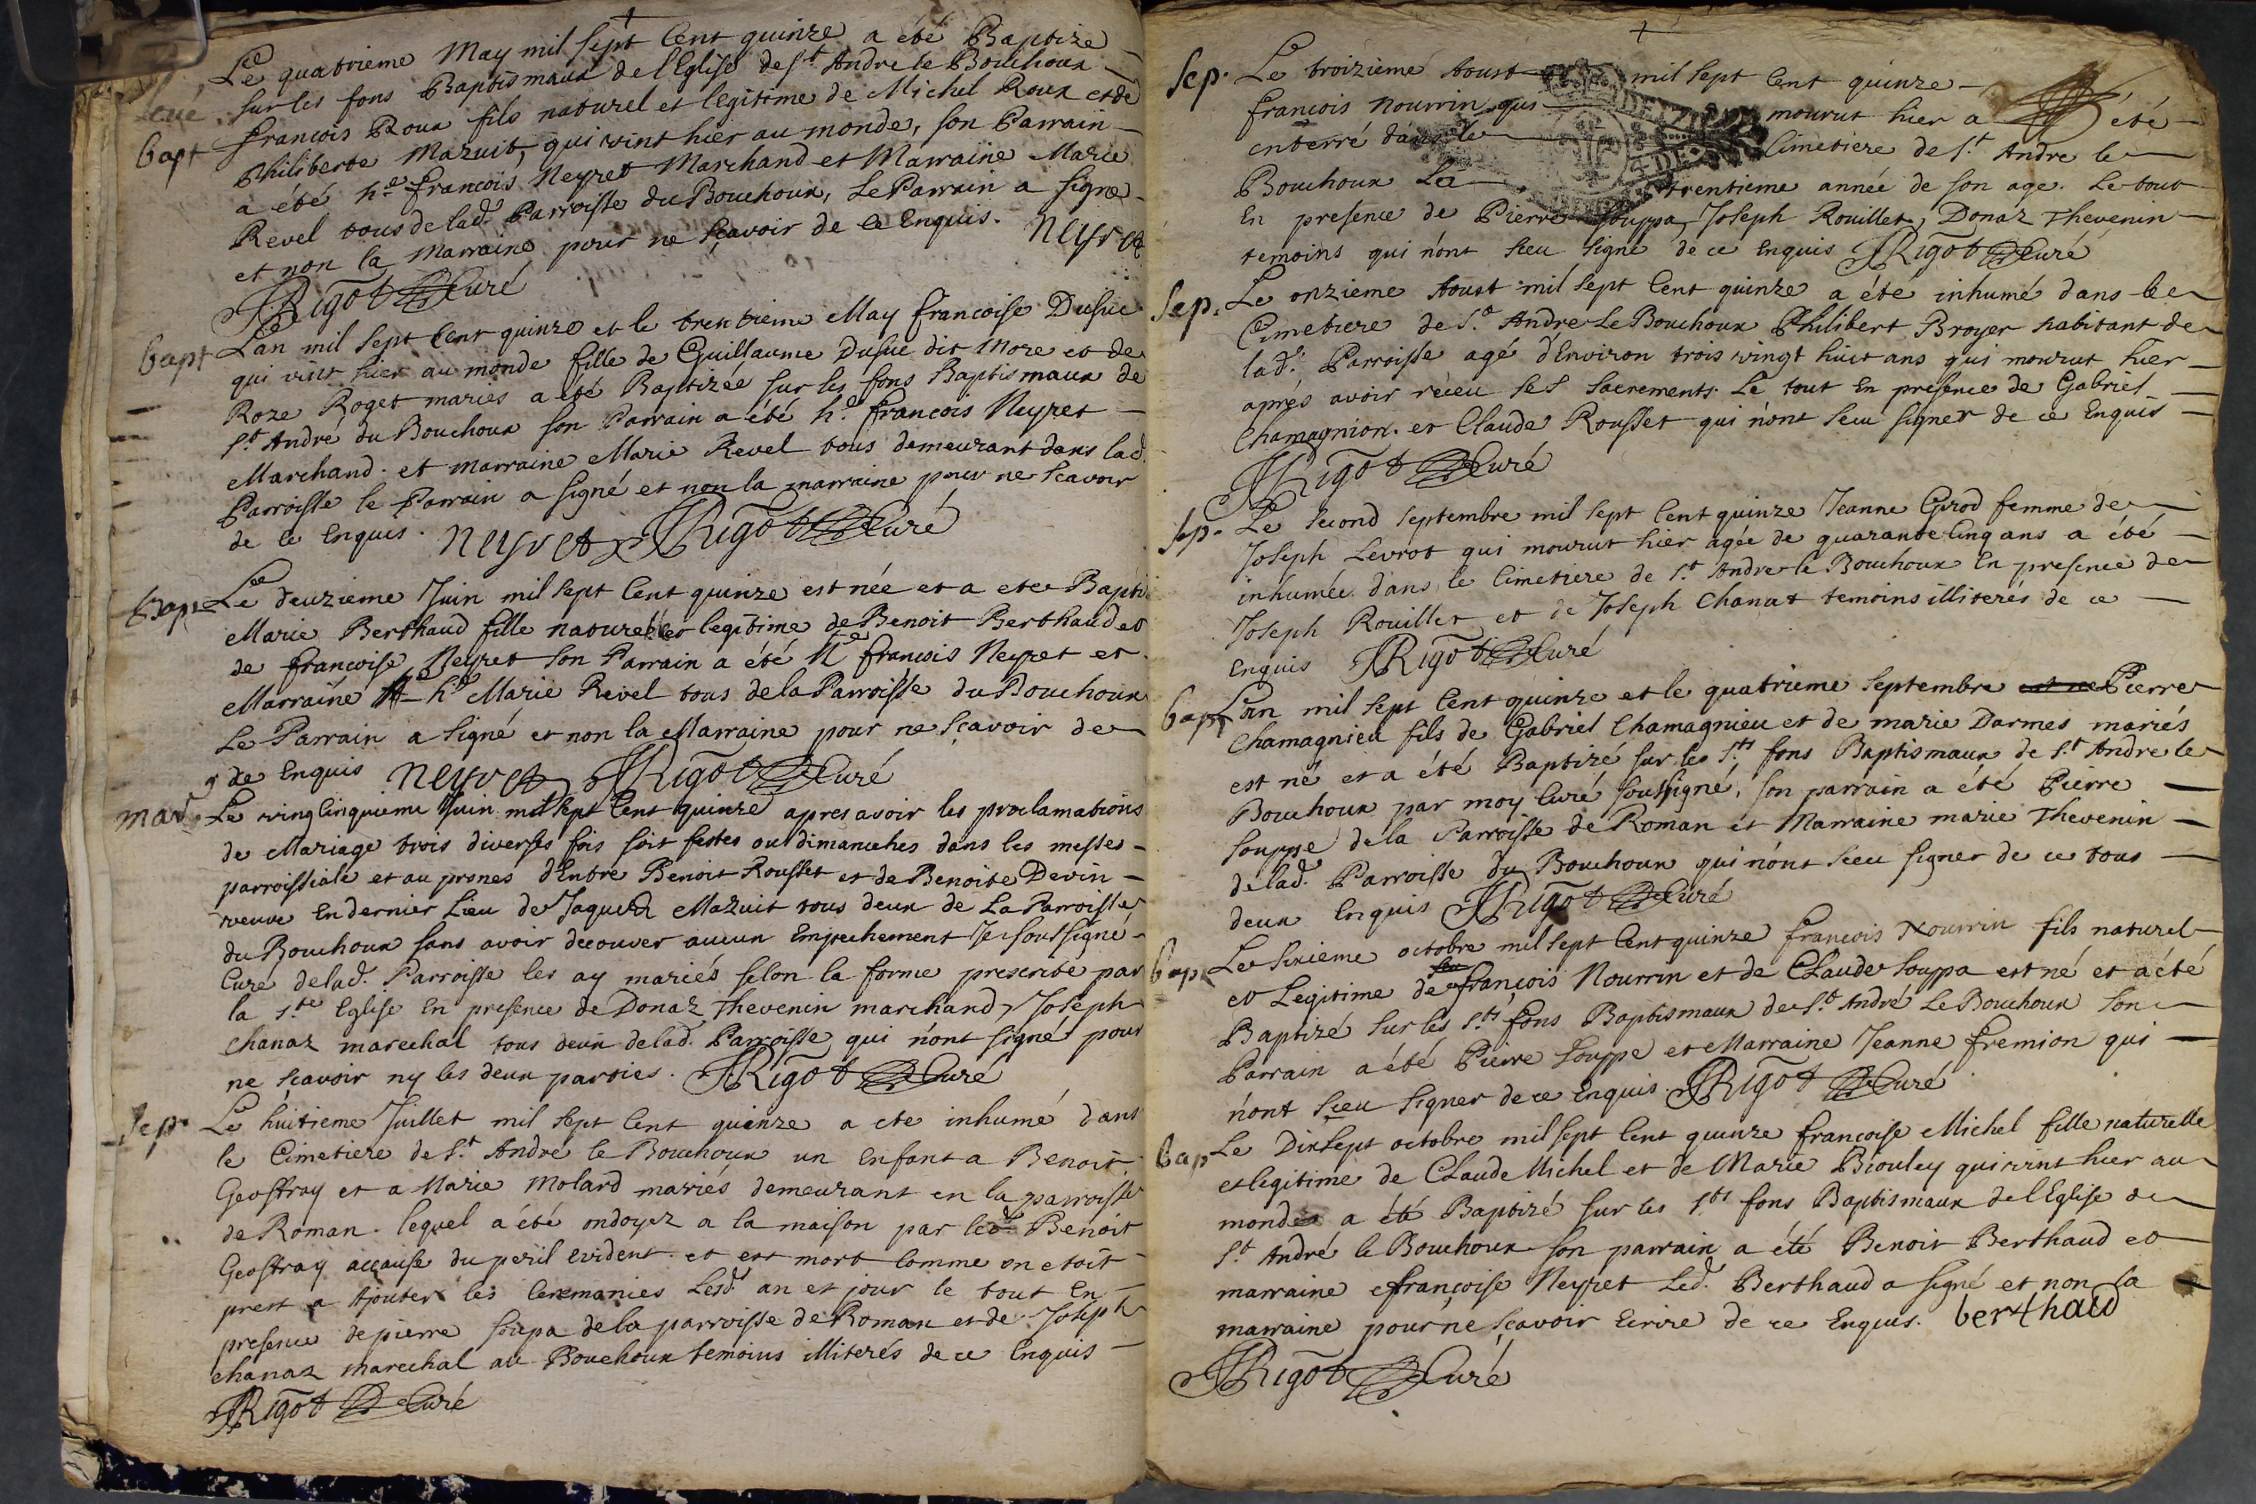 Le quatrieme May mil sept Cent quinze a été Baptize
sur les fons Baptismaux de l'Eglise de St Andre le Bouchoux
bapt françois Roux fils naturel et legitime de Michel Roux et de
Philiberte Mazuit, qui vint hier au monde, son Parrain
a été he françois Neyret Marchand et Marraine Marie
Revel tous de lad. Parroisse du Bouchoux, Le Parrain a signé
et non la Marraine pour ne sçavoir de ce Enquis. Neyret
JRigot Curé
bapt Lan mil sept Cent quinze et le trentieme May francoise Dusuc
qui vint hier au monde fille de Guillaume Dusuc dit More et de
Roze Roget mariés a été Baptizée sur les fons Baptismaux de
St André du Bouchoux son Parrain a été he françois Neyret
Marchand. et marraine Marie Revel tous demeurant dans lad.
Parroisse le Parrain a signé et non la marraine pour ne scavoir
de ce Enquis. Neyret JRigot Curé
Bap Le deuzieme Juin mil sept Cent quinze est née et a eté Bapti
Marie Berthaud fille naturelle et legitime de Benoit Berthaud et
de françoise Neyret son Parrain a été he françois Neyret et
Marraine he Marie Revel tous de la Parroisse du Bouchoux
Le Parrain a signé et non la Marraine pour ne sçavoir de
de Enquis Neyret JRigot Curé
mar. Le ving Cinquieme Juin mil sept Cent quinze apres avoir les proclamations
de Mariage trois diverses fois soit festes ou dimanches dans les messes
parroissiale et au prones d'Entre Benoit Rousset et de Benoite Devin
veuve En dernier Lieu de Jaques Mazuit tous deux de La Parroisse
du Bouchoux sans avoir decouver aucun Empechement Je soussigné
Curé de lad. Parroisse les ay mariés selon la forme prescrite par
la ste Eglise En presence de Donaz Thevenin marchand, Joseph
chanaz marechal tous deux de lad. Parroisse qui n'ont signé pour
ne scavoir ny les deux parties. JRigot Curé
Sep. Le huitieme Juillet mil sept Cent quinze a ete inhumé dans
le Cimetiere de St André le Bouchoux un Enfant a Benoit
Geoffray et a Marie Molard mariés demeurant en la parroisse
de Roman. lequel a été ondoyez a la maison par led. Benoit
Geoffray accause du peril evident et est mort comme on etoit
prest a Ajouter les Ceremonies Lesd. an et jour le tout En
presence de pierre soupa de la parroisse de Roman et de Joseph
chanaz marechal au Bouchoux temoins illiterés de ce Enquis
JRigot Curé
Sep. Le troizieme Aoust mil sept Cent quinze
françois Nourrin qui mourut hier a été
enterré dans le Cimetiere de St Andre le
Bouchoux La trentieme année de son age. Le tout
En presence de Pierre Souppa, Joseph Rouillet, Donaz Thevenin
temoins qui n'ont sceu signé de ce Enquis JRigot Curé
Sep. Le onzieme Aoust mil sept Cent quinze a été inhumé dans le
Cimetiere de St Andre Le Bouchoux Philibert Broyer habitant de
lad. Parroisse agé d'Environ trois vingt huit ans qui mourut hier
aprés avoir receu ses sacrements. Le tout En presence de Gabriel
Chamagnion. et Claude Rousset qui n'ont sceu signer de ce Enquis
JRigot Curé
Sep. Le second Septembre mil sept Cent quinze Jeanne Girod femme de
Joseph Levrot qui mourut hier agée de quarante Cinq ans a été
inhumée dans le Cimetiere de St Andre le Bouchoux En presence de
Joseph Rouillet et de Joseph Chanat temoins illiterés de ce
Enquis JRigot Curé
bap Lan mil sept Cent quinze et le quatrieme Septembre Pierre
Chamagnieu fils de Gabriel Chamagnieu et de marie Darmes mariés
est né et a été Baptizé sur les sts fons Baptismaux de St Andre le
Bouchoux par moy Curé soussigné, son parrain a été Pierre
souppe de la Parroisse de Roman et Marraine marie Thevenin
de lad. Parroisse du Bouchoux qui n'ont sceu signer de ce tous
deux Enquis JRigot Curé
bap Le Sixieme octobre mil sept Cent quinze françois Nourrin fils naturel
et Legitime de feu françois Nourrin et de Claude Souppa est né et a été
Baptizé sur les sts fons Baptismaux de St André Le Bouchoux son
Parrain a été Pierre Souppe et Marraine Jeanne fremion qui
n'ont sçeu signer de ce Enquis. JRigot Curé
bap Le Dixsept octobre mil sept Cent quinze françoise Michel fille naturelle
et legitime de Claude Michel et de Marie Biouley qui vint hier au
monde a été Baptizé sur les sts fons Baptismaux de l'Eglise de
St André le Bouchoux son parrain a été Benoit Berthaud et
marraine françoise Neyret Led. Berthaud a signé et non la
marraine pour ne sçavoir Ecrire de ce Enquis. berthaud
JRigot Curé